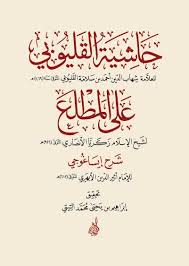 حاشية القليوبي
للعلامة شهاب الدين أحمد بن سلامة القليوبي
على المطلع
لشيخ الإسلام زكريا الأنصاري
شرح إيساغوجي
للإمام أثير الدين الأبهري
تحقيق
إبراهيم بن يحيى محمد